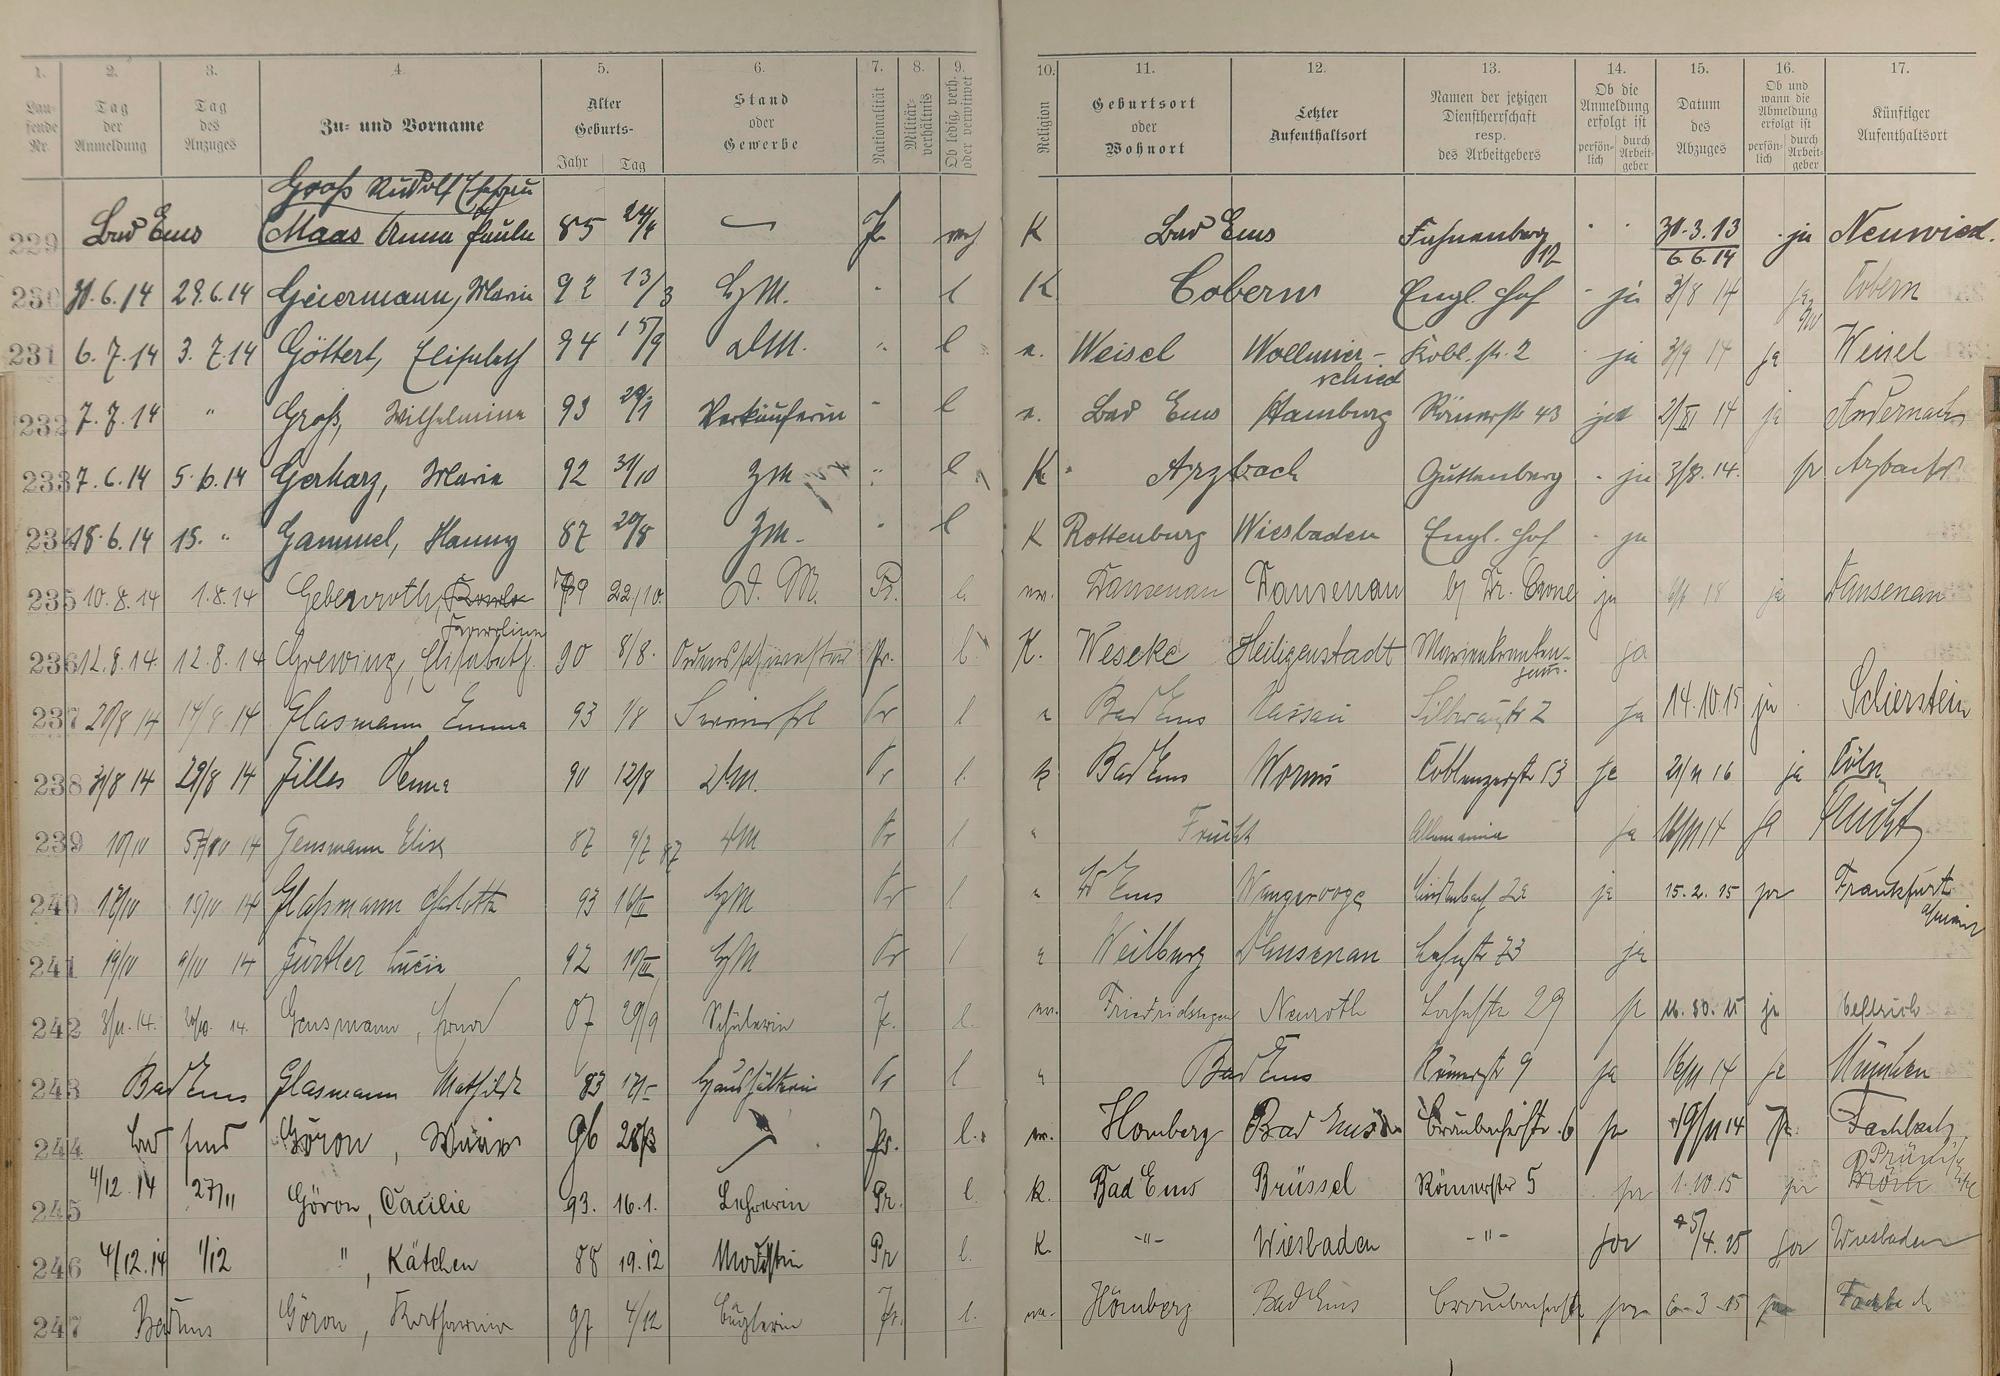 1. 2. 3. 4. 5. 6. 7. 8. 9. 10. 11. 12. 13. 14. 15. 16. 17.
Laufende Nr. Tag der Anmeldung Tag des Anzuges Zu- und Vorname Alter Geburts- Jahr Tag Stand oder Gewerbe Nationalität Militärverhältnis Ob ledig, verh. oder verwitwet Religion Geburtsort oder Wohnort Letzter Aufenthaltsort Namen der jetzigen Dienstherrschaft resp. des Arbeitgebers Ob die Anmeldung erfolgt ist persönlich durch Arbeitgeber Datum des Abzuges Ob und wann die Abmeldung erfolgt ist persönlich durch Arbeitgeber Künftiger Aufenthaltsort
Groß Rudolf Ehefrau
229 Bad Ems Maas Anna Paula 85 Pr K Bad Ems 12 30.3.13 6.6.14 ja Neuwied.
230 30.6.14 29.6.14 Geiermann, Maria 92 13/3 HM. " l K Cobern Engl. Hof - ja 3/8 14 ja Cobern
231 6.7.14 3.7.14 Göttert, Elisabeth 94 15/9 DM. " l e. Weisel Wollmerschied Kobl. str. 2 ja 3/9 14 ja Weisel
232 7.7.14 " Groß, Wilhelmine 93 Verkäuferin " l e. Bad Ems Hamburg Römerstr 43 2/XI 14 ja Andernach
233 7.6.14 5.6.14 Gerharz, Maria 92 31/10 ZM " l K Arzbach Guttenberg - ja 3/8.14. ja Arzbach
234 18.6.14 15. " Gammel, Hanny 87 20/8 ZM. " l K Rottenburg Wiesbaden Engl. Hof - ja
235 10.8.14 1.8.14 Gebenroth, Karoline 22/10. D. M. Pr. l. ev. Dausenau Dausenau b/ Dr. Crone ja ja Dausenau
236 12.8.14. 12.8.14 Grewing, Elisabeth. 90 8/8. Ordensschwester Pr. l. K. Weseke Heiligenstadt Marienkrankenhaus. ja
237 20/8 14 14/8 14 Glasmann Emma 93 1/8 Pr l e Bad Ems Nassau Silberaustr 2 ja 14.10.15 ja Schierstein
238 31/8 14 29/8 14 90 12/8 DM. Pr l. k Bad Ems Worms Coblenzerstr 53 ja ja Cöln
239 10/IV 14 Gensmann Elise 87 9/7 87 Pr l e Frücht Allemania ja ja Frücht
240 14 Glaßmann Charlotte 93 HM Pr l e B Ems Wangerooge Lindenbach ja 15.2.15 ja Frankfurt a/Main
241 14 Gürtler Lucie 92 10/III HM Pr l e Weilburg Dausenau Lahnstr 73 ja
242 3/11.14. 14. Gensmann, Erna 07 29/9 Schülerin Pr. l. ev. Friedrichssegen Neuroth Lahnstr 29 ja ja
243 Bad Ems Glasmann Mathilde 83 Haushälterin Pr l e Bad Ems Römerstr 9 ja 14 ja München
244 Bad Ems Göron, Maria 96 Pr. l. ev. Homberg Bad Ems Braubacherstr. 6 ja 19/11 14 Fachbach
245 4/12.14 27/11 Göron, Cäcilie 93. 16.1. Lehrerin Pr. l. k. Bad Ems Brüssel Römerstr 5 ja 1.10.15 ja
246 4/12.14 1/12 ", Kätchen 88 19.12 Modistin Pr l. K. -"- Wiesbaden -"- ja 5/4.15 ja Wiesbaden
247 Bad Ems Göron, Katharina 97 4/12 Büglerin Pr. l. ev. Homberg Bad Ems Braubacherstr ja 6-3-15 ja Fachbach